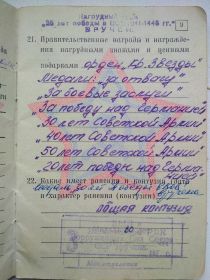 Нагрудный знак
"25 лет победы в ВОВ 1941-1945 гг."
ВРУЧЕН.
9
21. Правительственные награды и награжде-
ния нагрудными знаками и ценными
подарками орден „Кр. Звезды"
Медали: „За отвагу"
„За боевые заслуги"
„За победу над Германией"
„30 лет Советской Армии"
„40 лет Советской Армии"
„50 лет Советской Армии"
„20 лет победы над Герман
22. Какие имеет ранения и контузии (дата
и характер ранения
общая контузия